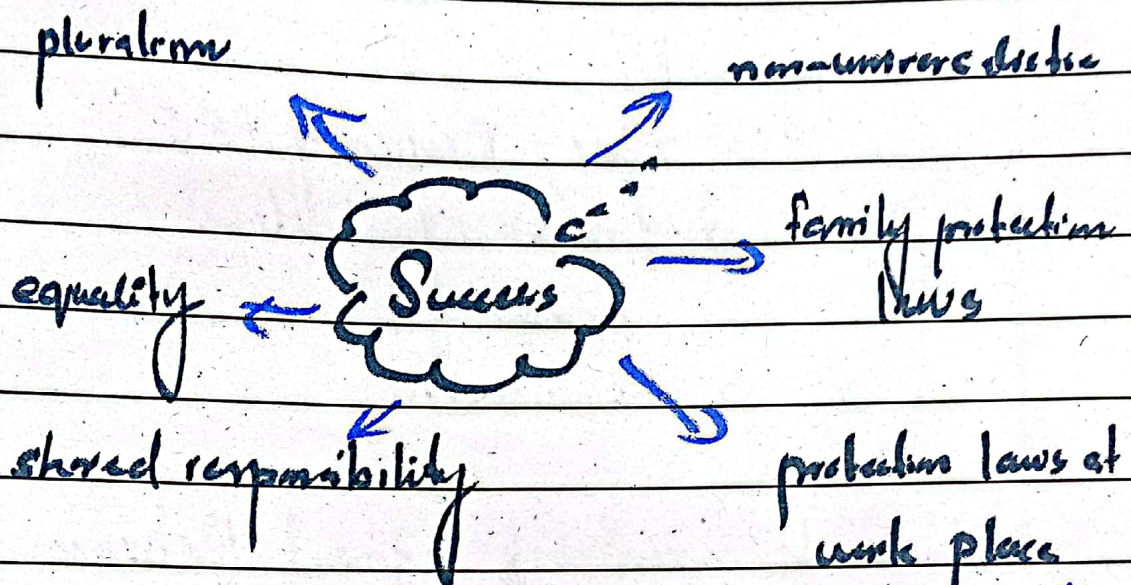 pluralism
non-universalistic
family protection
laws
Success
equality
shared responsibility
protection laws at
work place